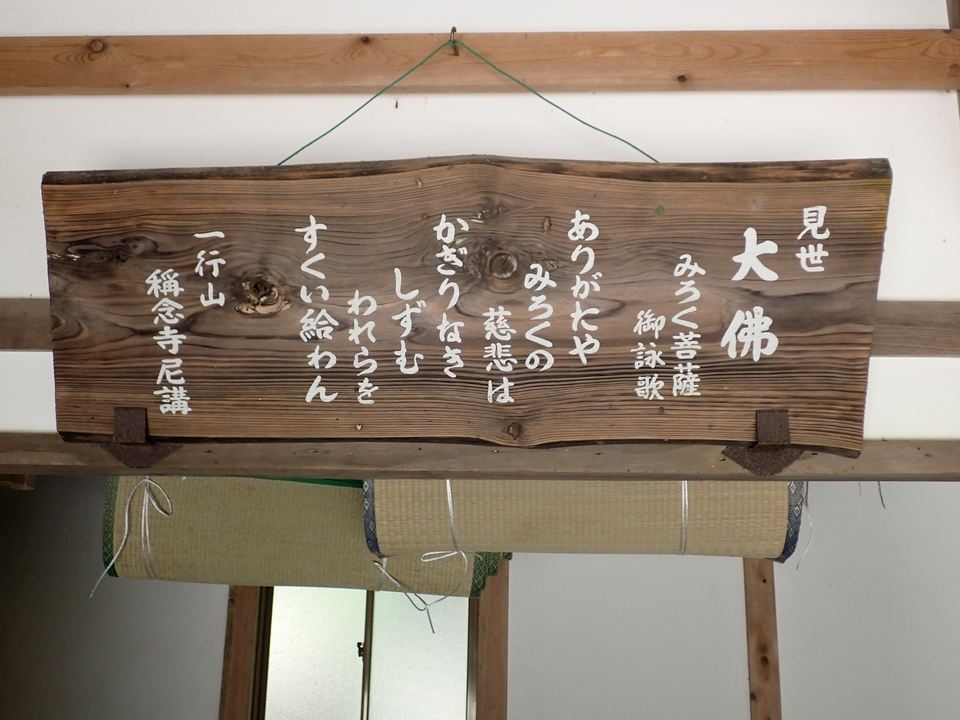 見世
大佛
みろく菩薩
御詠歌
ありがたや
みろくの
慈悲は
かぎりなき
しずむ
われらを
すくい給わん
一行山
稱念寺尼講